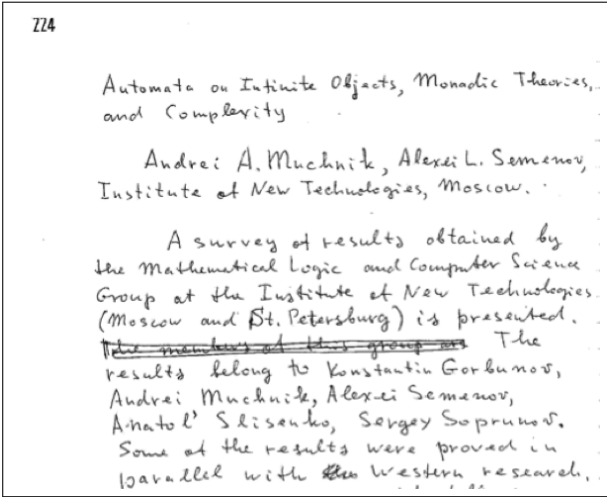 224
Automata on Infinite Objects, Monadic Theories,
and Complexity
Andrei A. Muchnik, Alexei L. Semenov,
Institute of New Technologies, Moscow.
A survey of results obtained by
the Mathematical Logic and Computer Science
Group at the Institute of New Technologies
(Moscow and St. Petersburg) is presented.
The members of this group are The
results belong to Konstantin Gorbunov,
Andrei Muchnik, Alexei Semenov,
Anatol' Slisenko, Sergey Soprunov.
Some of the results were proved in
parallel with the Western research.